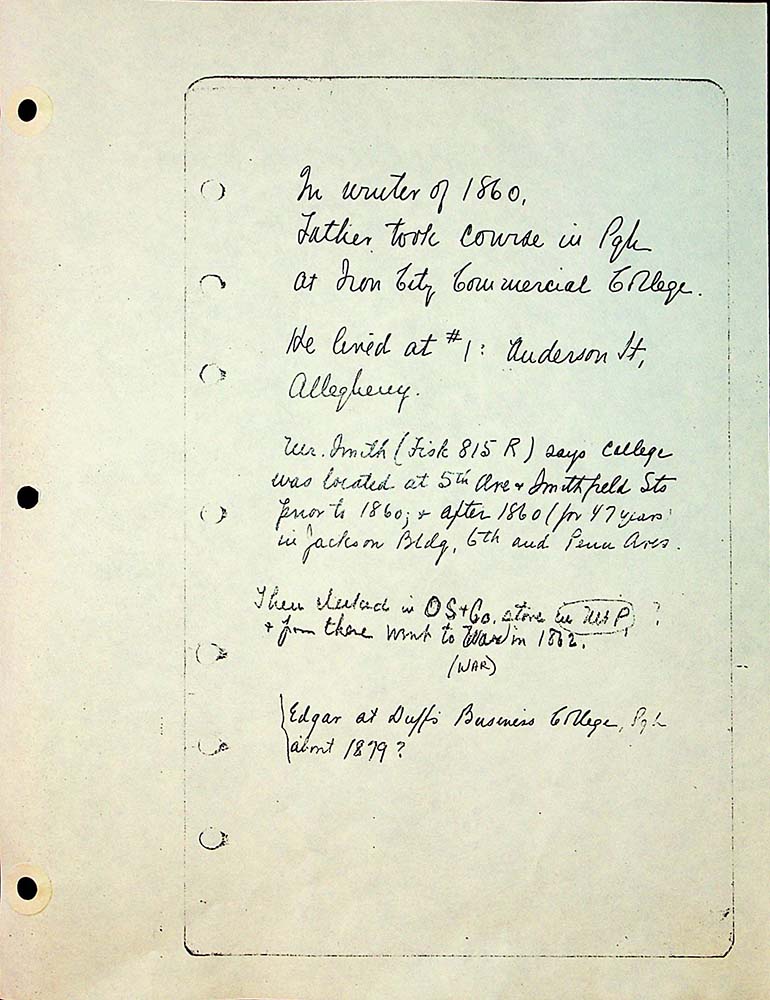 In winter of 1860,
Father took course in Pgh
at Iron City Commercial College.
He lived at #1: Anderson St,
Allegheny.
Mr. Smith (Fisk 815 R) says college
was located at 5th Ave & Smithfield Sts
prior to 1860; & after 1860 (for 47 years
in Jackson Bldg, 6th and Penn Aves.
Then clerked in OS & Co. store in ?
& from there went to War in 1862.
(WAR)
Edgar at Duff's Business College, Pgh
about 1879?